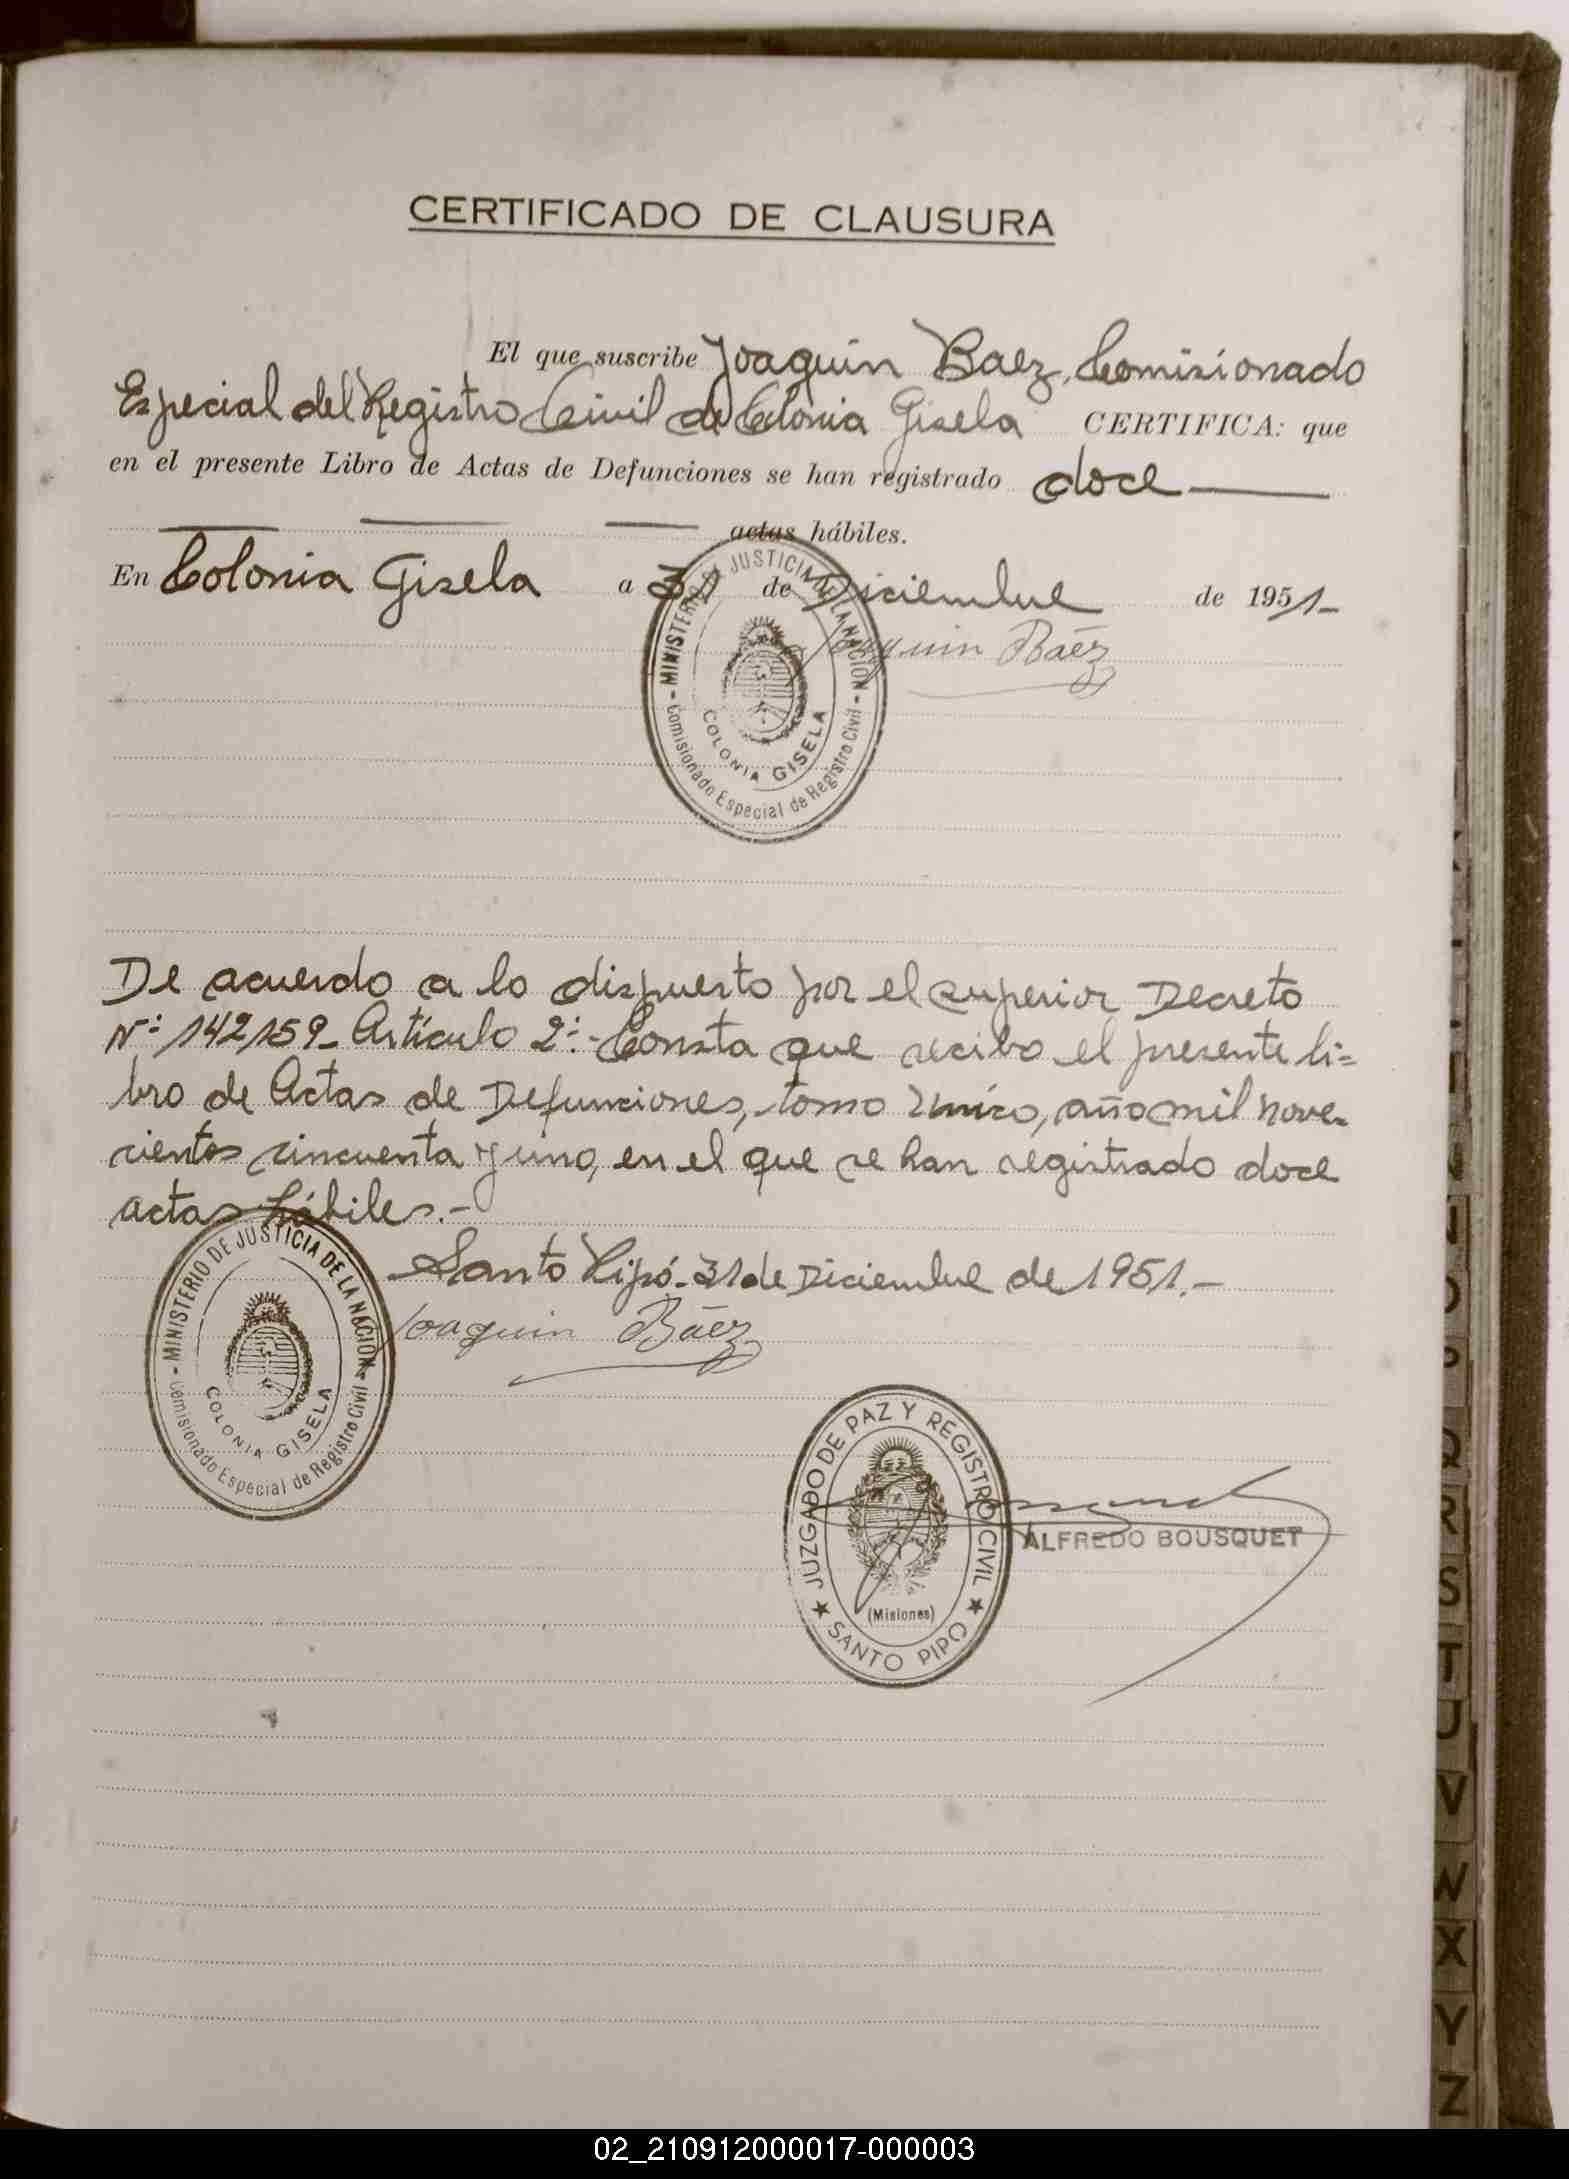 CERTIFICADO DE CLAUSURA
El que suscribe Joaquin Baez, Comisionado
Especial del Registro Civil de Colonia Gisela CERTIFICA: que
en el presente Libro de Actas de Defunciones se han registrado doce
actas hábiles.
En Colonia Gisela a 31 de Diciembre de 1951-
Joaquin Báez
- MINISTERIO DE JUSTICIA DE LA NACION -
COLONIA GISELA
Comisionado Especial de Registro Civil
De acuerdo a lo dispuesto por el superior Decreto
Nº 142159- Artículo 2º:- Consta que recibo el presente li=
bro de Actas de Defunciones, tomo Unico, año mil nove-
cientos cincuenta y uno, en el que se han registrado doce
actas hábiles.-
Santo Pipó- 31 de Diciembre de 1951.-
Joaquin Báez
- MINISTERIO DE JUSTICIA DE LA NACION -
COLONIA GISELA
Comisionado Especial de Registro Civil
JUZGADO DE PAZ Y REGISTRO CIVIL
(Misiones)
SANTO PIPO
ALFREDO BOUSQUET
Q
R
S
T
U
V
W
X
Y
Z
02_210912000017-000003